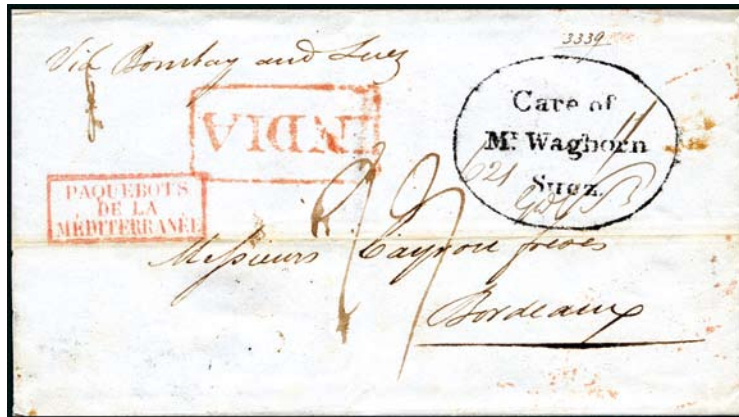 Via Bombay and Suez
3339
INDIA
Care of
Mr. Waghorn
Suez.
PAQUEBOTS
DE LA
MÉDITERRANÉE
621
Messieurs frères
Bordeaux